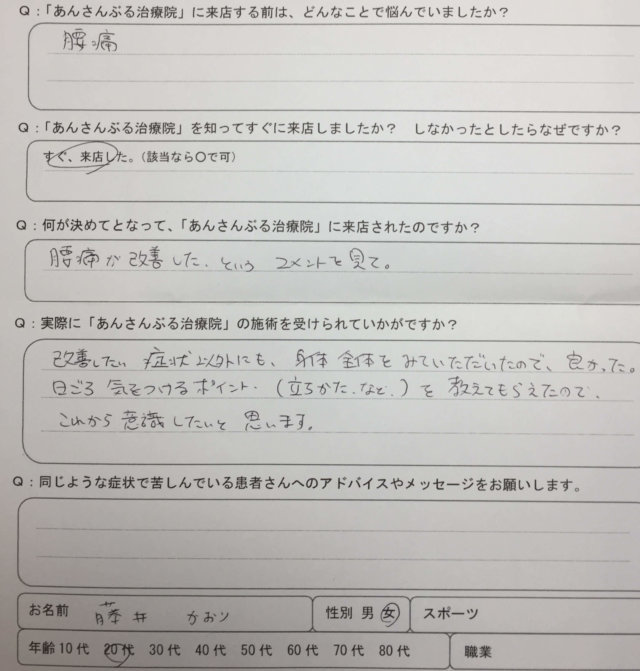 Q：「あんさんぶる治療院」に来店する前は、どんなことで悩んでいましたか？
腰痛
Q：「あんさんぶる治療院」を知ってすぐに来店しましたか？　しなかったとしたらなぜですか？
すぐ、来店した。（該当なら〇で可）
Q：何が決めてとなって、「あんさんぶる治療院」に来店されたのですか？
腰痛が改善した、という コメントを見て。
Q：実際に「あんさんぶる治療院」の施術を受けられていかがですか？
改善したい 症状以外にも、身体全体をみていただいたので、良かった。
日ごろ 気をつけるポイント（立ちかた、など）を 教えてもらえたので、
これから 意識したいと 思います。
Q：同じような症状で苦しんでいる患者さんへのアドバイスやメッセージをお願いします。
お名前 藤井 かおり 性別 男 女 スポーツ
年齢 10代 20代 30代 40代 50代 60代 70代 80代 職業